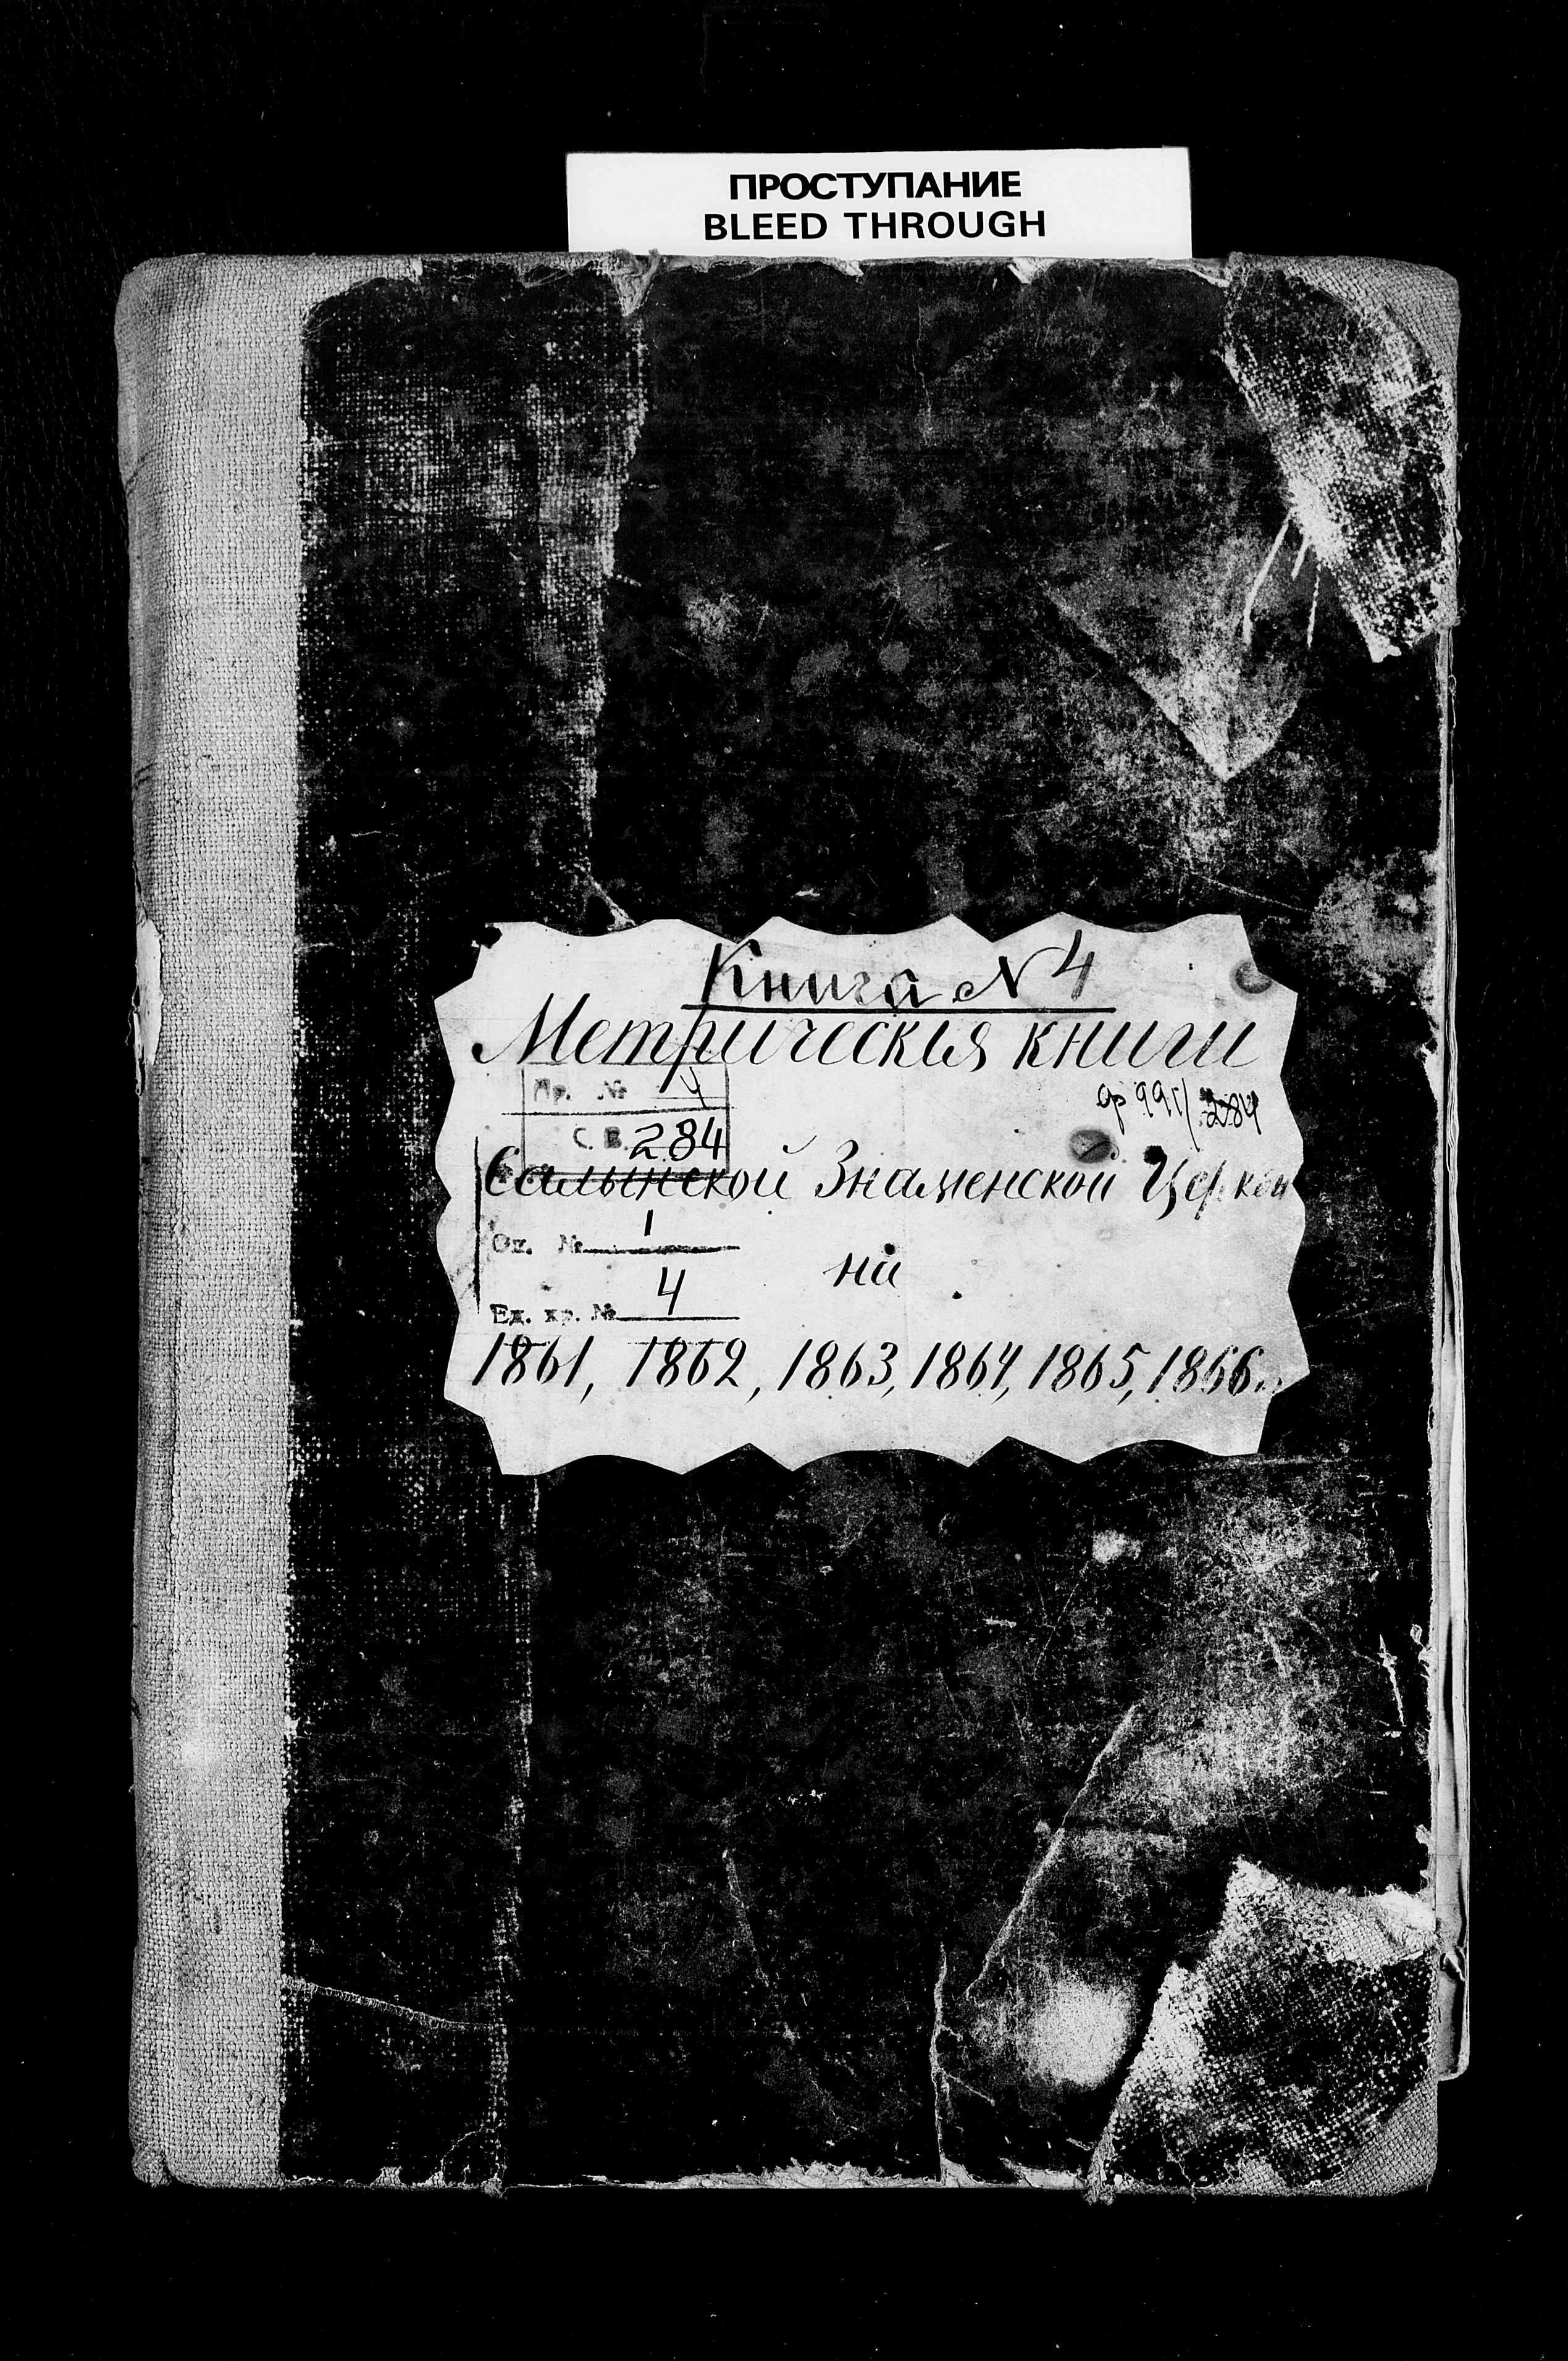 ПРОСТУПАНИЕ
BLEED THROUGH
Книга № 4
Метрическия книги
Пр. № 4
ф 991/ 284
С. В. 284
Салынской Знаменской Церкви
Оп. № 1
на
Ед. хр. № 4
1861, 1862, 1863, 1864, 1865, 1866